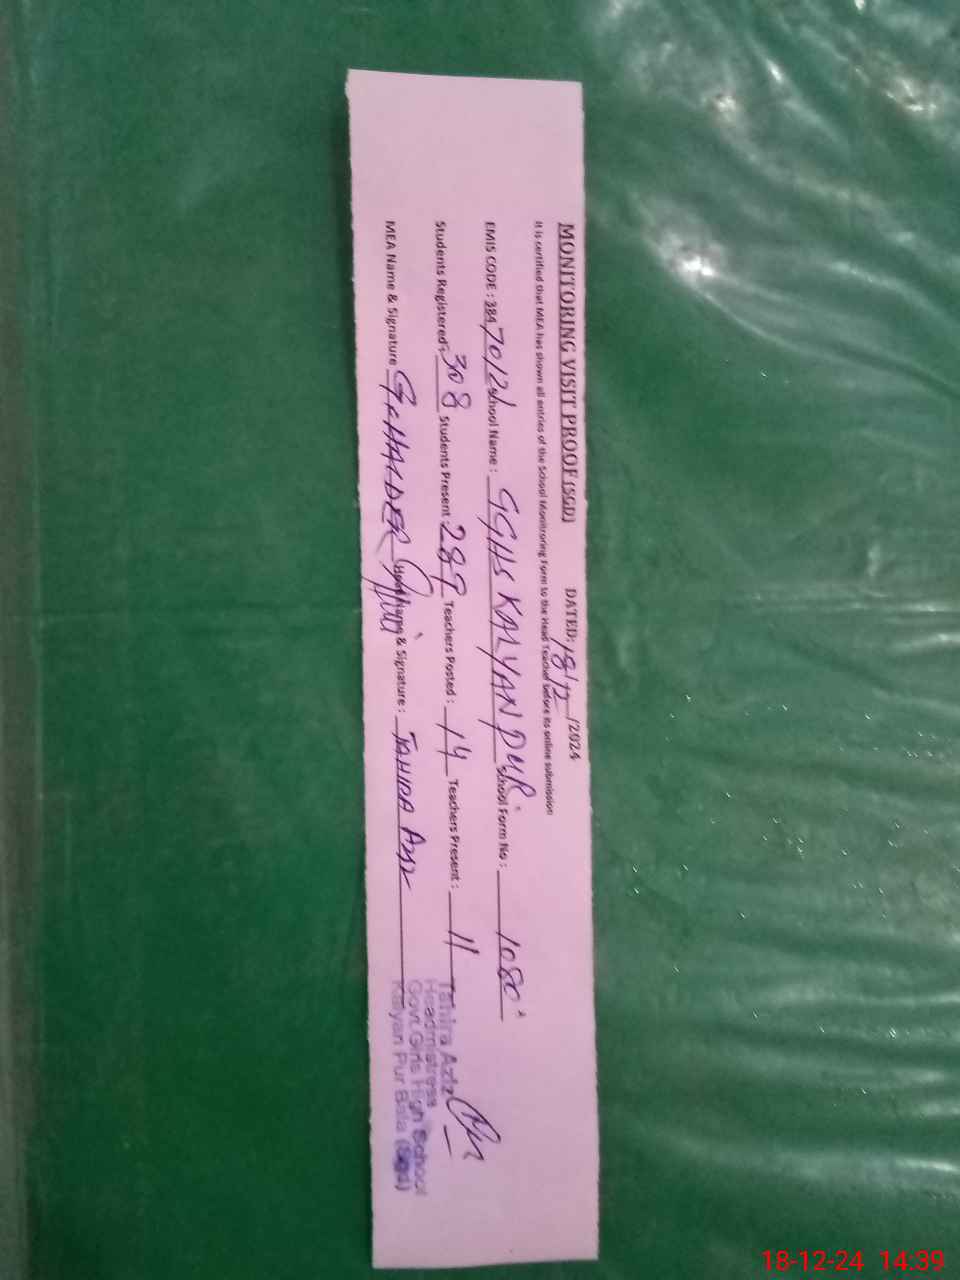 MONITORING VISIT PROOF (SGD) DATED: 18/12/2024
It is certified that MEA has shown all entries of the School Monitroring Form to the Head Teacher before its online submission
EMIS CODE : 38470121 School Name : GGHS KALYAN PUR. School Form No : 1080
Students Registered: 308 Students Present 289 Teachers Posted : 14 Teachers Present : 11
MEA Name & Signature & Signature : TAHIRA Aziz
Tahira Aziz
Headmistress
Govt. Girls High School
Kalyan Pur Bala (Sgd)
18-12-24 14:39